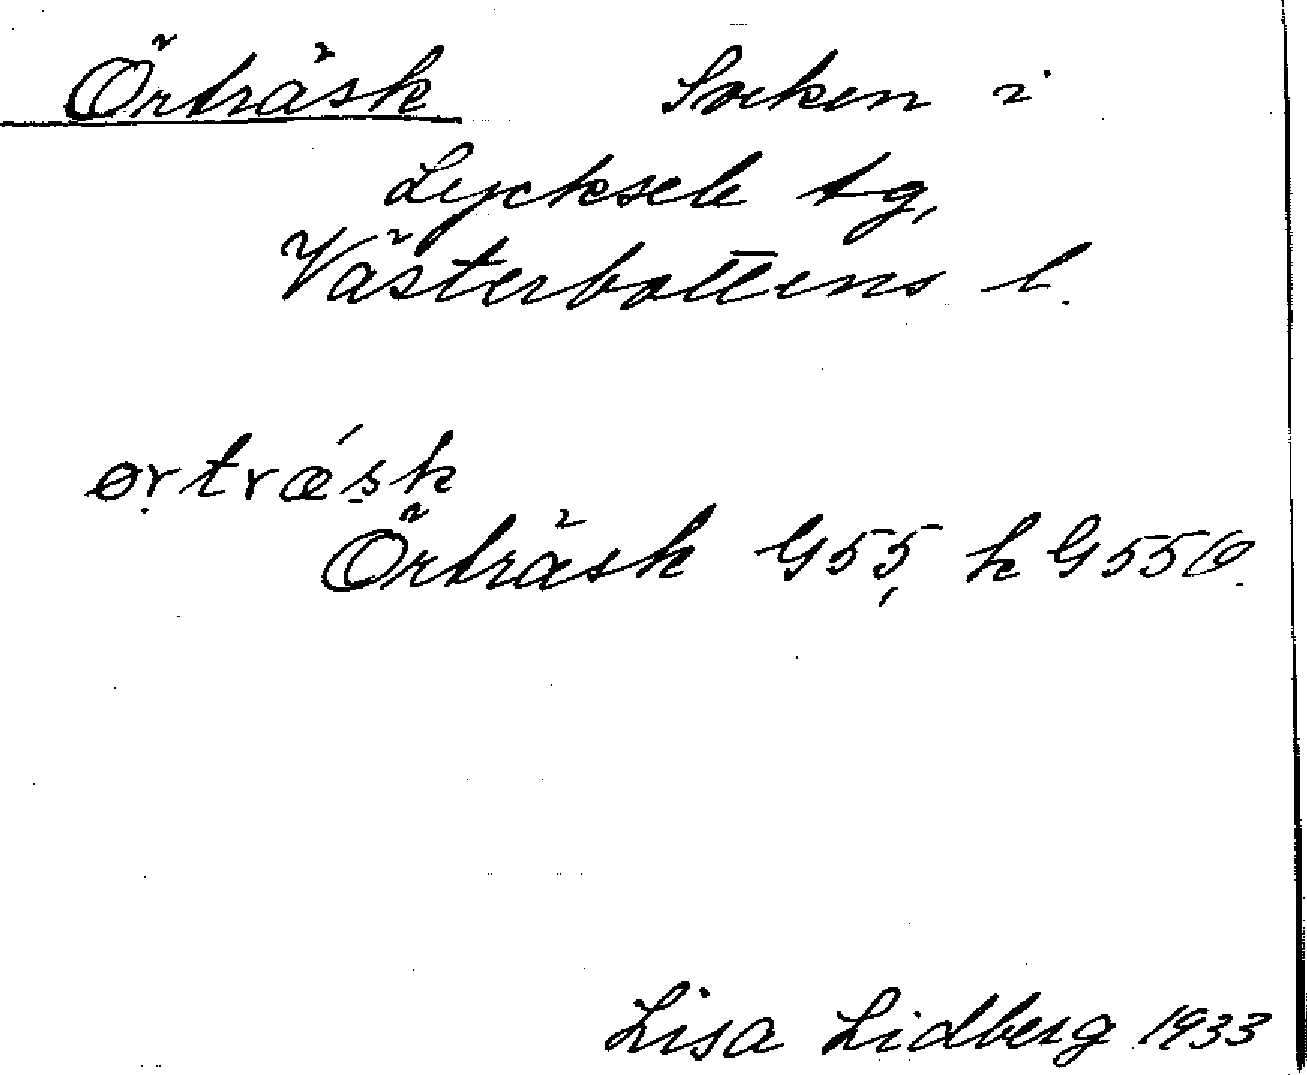 Örträsk Socken i
Lycksele tg,
Västerbottens l.
ørtræ´sk
Örträsk G55, k G550.
Lisa Lidberg 1933